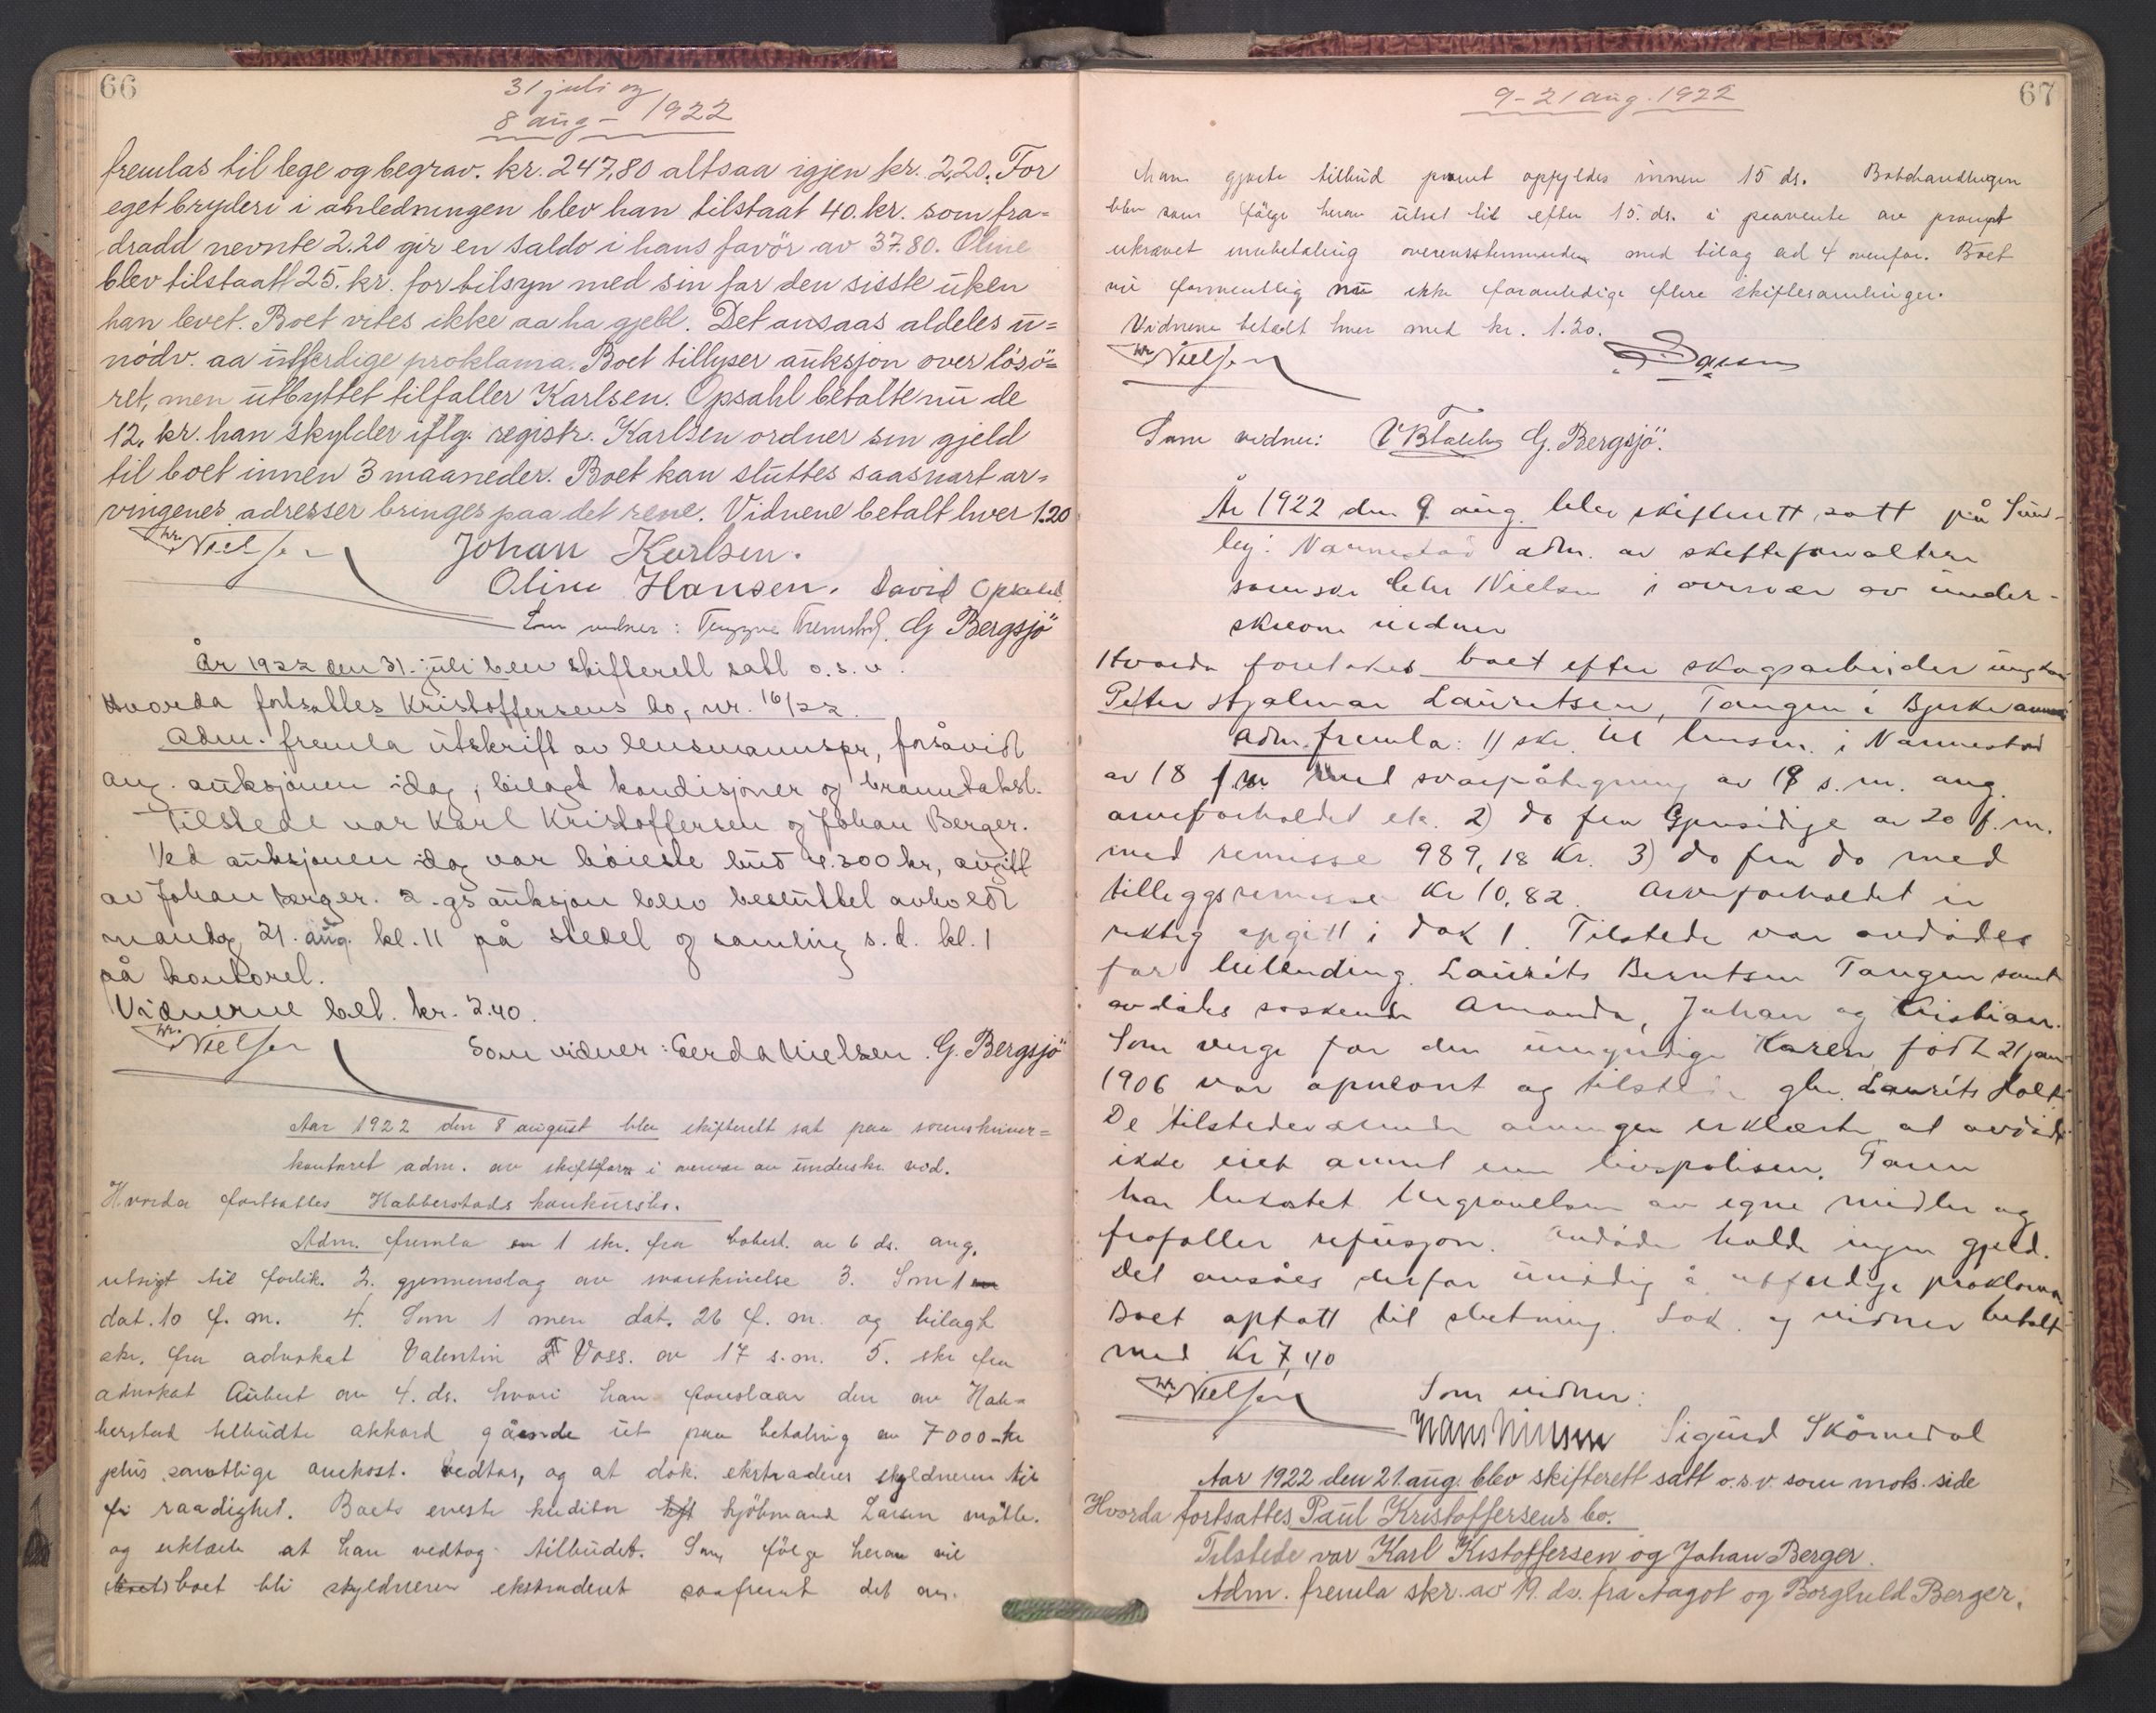 66
31 juli og
8 aug - 1922
fremlas til lege og begrav. kr. 247,80 altsaa igjen kr. 2,20. For
eget bryderi i anledningen blev han tilstaat 40. kr. som fra=
dradd nevnte 2.20 gir en saldo i hans favör av 37.80. Oline
blev tilstaatt 25. kr. for tilsyn med sin far den sisste uken
han levet. Boet vites ikke aa ha gjeld. Det ansaas aldeles u=
nödv. aa utferdige proklama. Boet tillyser auksjon over lösö=
ret, men utbyttet tilfaller Karlsen. Opsahl betalte nu de
12. kr. han skylder iflg. registr. Karlsen ordner sin gjeld
til boet innen 3 maaneder. Boet kan sluttes saasnart ar=
vingenes adresser bringes paa det rene. Vidnene betalt hver 1.20
Nielsen
Johan Karlsen.
Oline Hansen. David Opsahl
Som vidner: G Bergsjö
År 1922 den 31. juli blev skifterett satt o.s.v.
Hvorda fortsattes Kristoffersens bo, nr. 16/22.
Adm. fremla utskrift av lensmannspr, forsåvidt
ang. auksjonen idag, bilagt kondisjoner og branntakst.
Tilstede var Karl Kristoffersen og Johan Berger.
Ved auksjonen idag var høieste bud 4.300 kr, avgitt
av Johan Berger. 2. gs auksjon blev besluttet avholdt
mandag 21. aug. kl. 11 på stedet og samling s.d. kl. 1
på kontoret.
Vidnerne bet. kr. 2.40.
Nielsen
Som vidner: Gerda Nielsen. G. Bergsjö
Aar 1922 den 8 august blev skifterett sat paa sorenskriver=
kontoret adm. av skiftforv i overvær av underskr. vid.
Hvorda fortsattes Habberstads konkursbo.
Adm. fremla 1 skr. fra bobest. av 6 ds. ang.
utsigt til forlik. 2. gjennemslag av svarskrivelse 3. Som 1
dat. 10 f. m. 4. Som 1 men dat. 26 f. m. og bilagt
skr. fra advokat Valentin Voss. av 17 s.m. 5. skr fra
advokat Aubert av 4. ds. hvori han foreslaar den av Hab=
berstad tilbudte akkord gående ut paa betaling av 7000 kr
plus samtlige omkost. vedtas, og at dok. ekstraderes skyldneren til
fri raadighet. Boets eneste kreditor kjöbmand Larsen mötte.
og erklærte at han vedtog tilbudet. Som følge herav vil
boet bli skyldneren ekstraderet saafremt det av.
67
9-21 aug. 1922
ham gjorte tilbud promt opfyldes innen 15 ds. Bobehandlingen
blev som følge herav utsat til efter 15. ds. i paavente av prompt
ukrævet innbetaling overensstemmende med bilag ad 4 ovenfor. Boet
vil formentlig nu ikke foranledige flere skiftesamlinger.
Vidnene betalt hver med kr. 1.20.
Nielsen
Som vidner: G. Bergsjö.
År 1922 den 9. aug. blev skifterett satt på
Nannestad adm. av skifteforvalteren
sorenskr. Nielsen i overvær av under-
skrevne vidner
Hvorda foretokes boet efter skogsarbeider ungkar
Peter Hjalmar Lauritsen, Tangen i Bjerke
Adm. fremla: 1) skr. til lensm. i Nannestad
av 18 f.m. med svarpåtegning av 19 s.m. ang.
arveforholdet etc. 2) do fra Gjensidige av 20 f.m.
med remisse 989,18 Kr. 3) do fra do med
tilleggsremisse Kr 10,82. Arveforholdet er
riktig opgitt i dok 1. Tilstede var avdødes
far Laurits Berntsen Tangen samt
avdødes søskende Amanda, Johan og Kristian.
Som verge for den umyndige Karen, født 21 jan
1906 var opnevnt og tilstede gbr. Laurits Holt.
De tilstedeværende arvinger erklærte at avdøde
ikke eiet annet enn livspolisen. Faren
har bekostet begravelsen av egne midler og
frafaller refusjon. Avdøde hadde ingen gjeld.
Det ansåes derfor unødig å utferdige proklama
Boet optatt til slutning. Lok. og vidner betalt
med Kr 7,40
Nielsen
Som vidner:
Hans Nilsen Sigurd Skörnedal
Aar 1922 den 21. aug. blev skifterett satt o.s.v. som mots. side
Hvorda fortsattes Paul Kristoffersens bo.
Tilstede var Karl Kistoffersen og Johan Berger.
Adm. fremla skr. av 19. ds. fra Aagot og Borghild Berger,